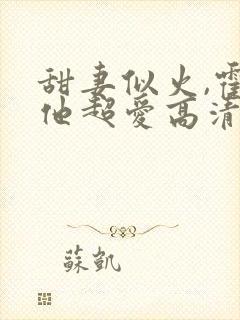 甜妻似火,霍
他超爱高清
蘇凱